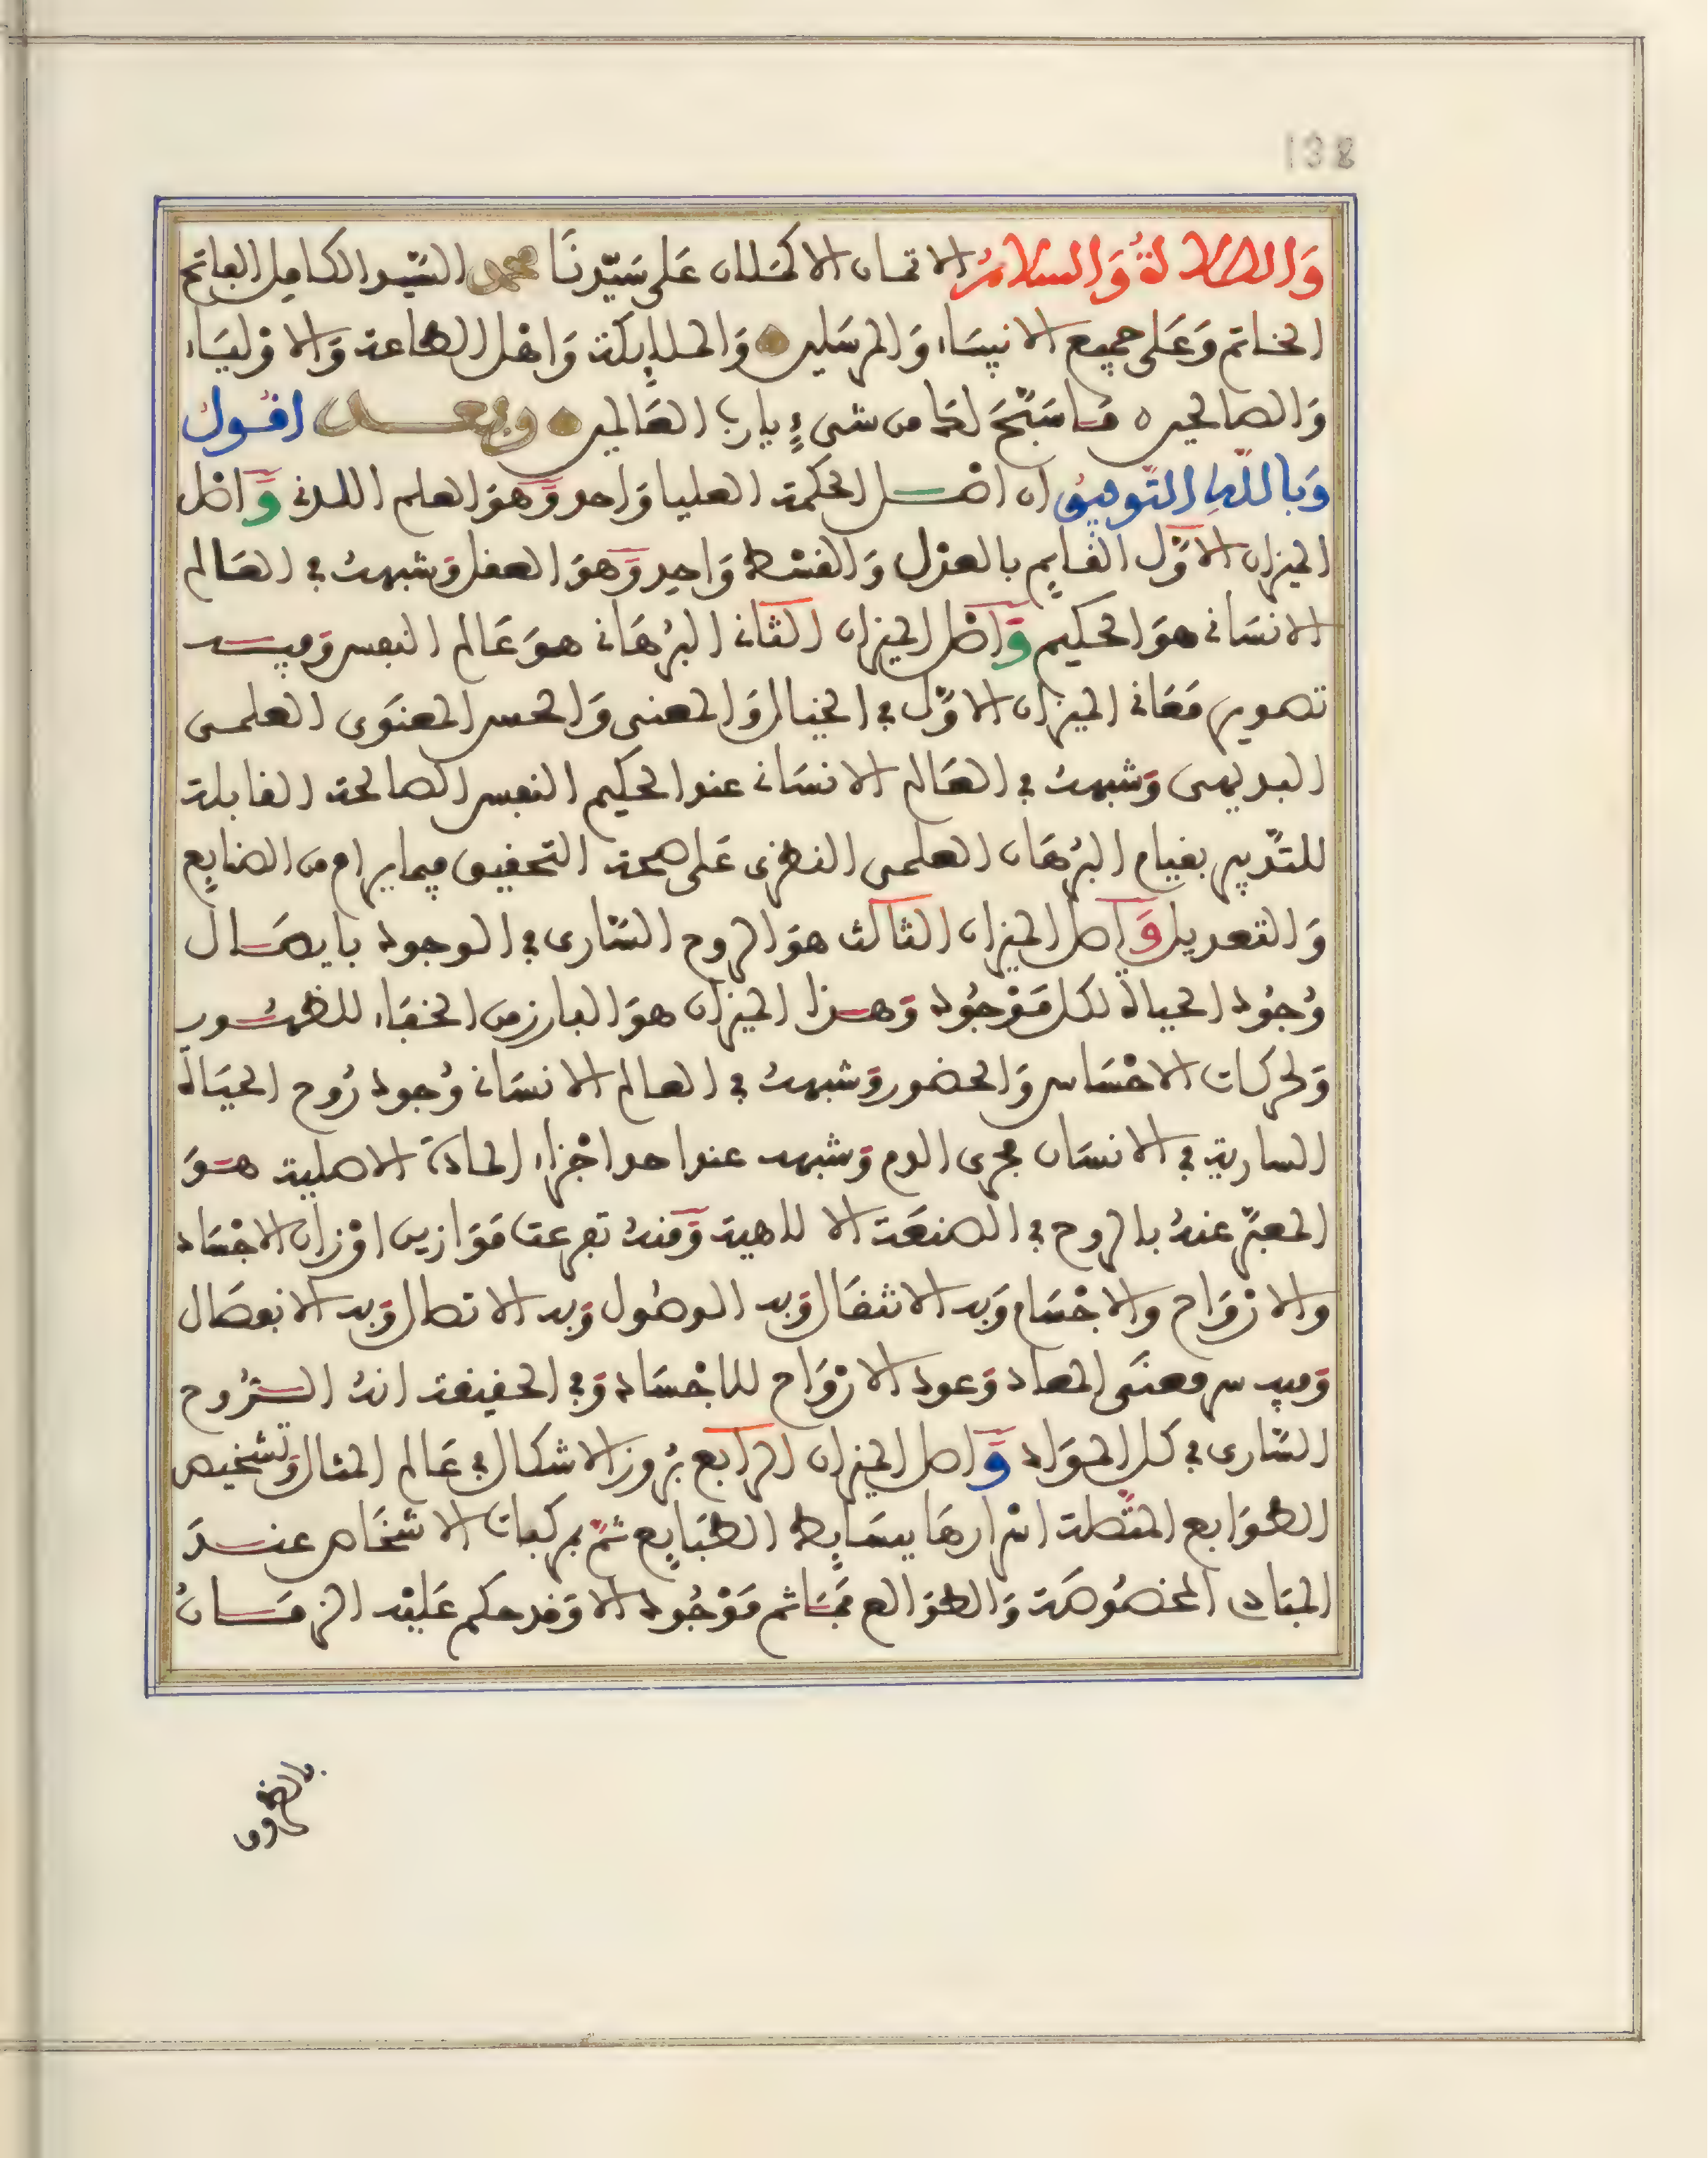 138
وَالصلاةُ وَالسلامُ الاتمان الاكملان عَلى سَيّدنَا محمد السَيّد الكامل الفاتح
الخاتم وَعَلى جميع الانبيَاء وَالمرسَلين وَالملايكة وَاهْل الطاعة وَالاوْليَاء
وَالصالحين مَا سَبَّحَ لكَ من شىءٍ يارب العَالمين وبعد اقول
وَبالله التّوفيق ان اصْل الحكمة العليا وَاحد وَهوَ العلم اللدنى وَاصْل
الميزان الاوّل القايم بالعدْل وَالقسْط وَاحد وَهوَ العقل وَشبهه في العَالم
الانسَانى هوَ الحكيم وَاصْل الميزان الثَانى البُرْهَانى هوَ عَالم النفس وَفيه
تصوير مَعَانى الميزان الاوّل في الخيال وَالمعنى وَالحس المعنَوى العلمى
البديهى وَشبهه في العَالم الانسَانى عند الحكيم النفس الصالحة القابلة
للتدبير بقيام البُرْهَان العلمى النظرى عَلى صحة التحقيق فيما يرام من الصنايع
وَالتعديل وَاصل الميزان الثالث هوَ الروح السَّارى في الوجود بايصَال
وُجُود الحياة لكل مَوْجُود وَهذا الميزان هوَ البارز من الخفَاء للظهُور
وَلحركات الاحْسَاس وَالحضور وَشبههُ في العالم الانسَانى وُجود رُوح الحيَاة
السارية في الانسَان مجرى الدم وَشبهه عند احد اجْزاء المادة الاصلية هوَ
المعبّر عنهُ بالروح في الصنعَة الالاهية وَمنهُ تفرعت مَوَازين اوْزان الاجْسَاد
والارْوَاح والاجْسَام وَبه الانتقَال وَبه الوصُول وَبه الاتصال وَبه الانفصَال
وَفيه سر معنَى المعاد وَعود الارْوَاح للاجْسَاد وَفي الحقيقة انهُ الرُوح
السَّارى في كل الموَاد وَاصل الميزان الرَابع بُروز الاشكال في عَالم المثال وَتشخيص
الطوَابع المتّصلة اسْرارهَا ببسَايط الطبَايع ثمّ بمركبات الاشخَاص عند
المبَادى المخصُوصَة وَالطوَالع فمَا ثم مَوْجُود الا وَقد حكم عَليْه الزمَانُ